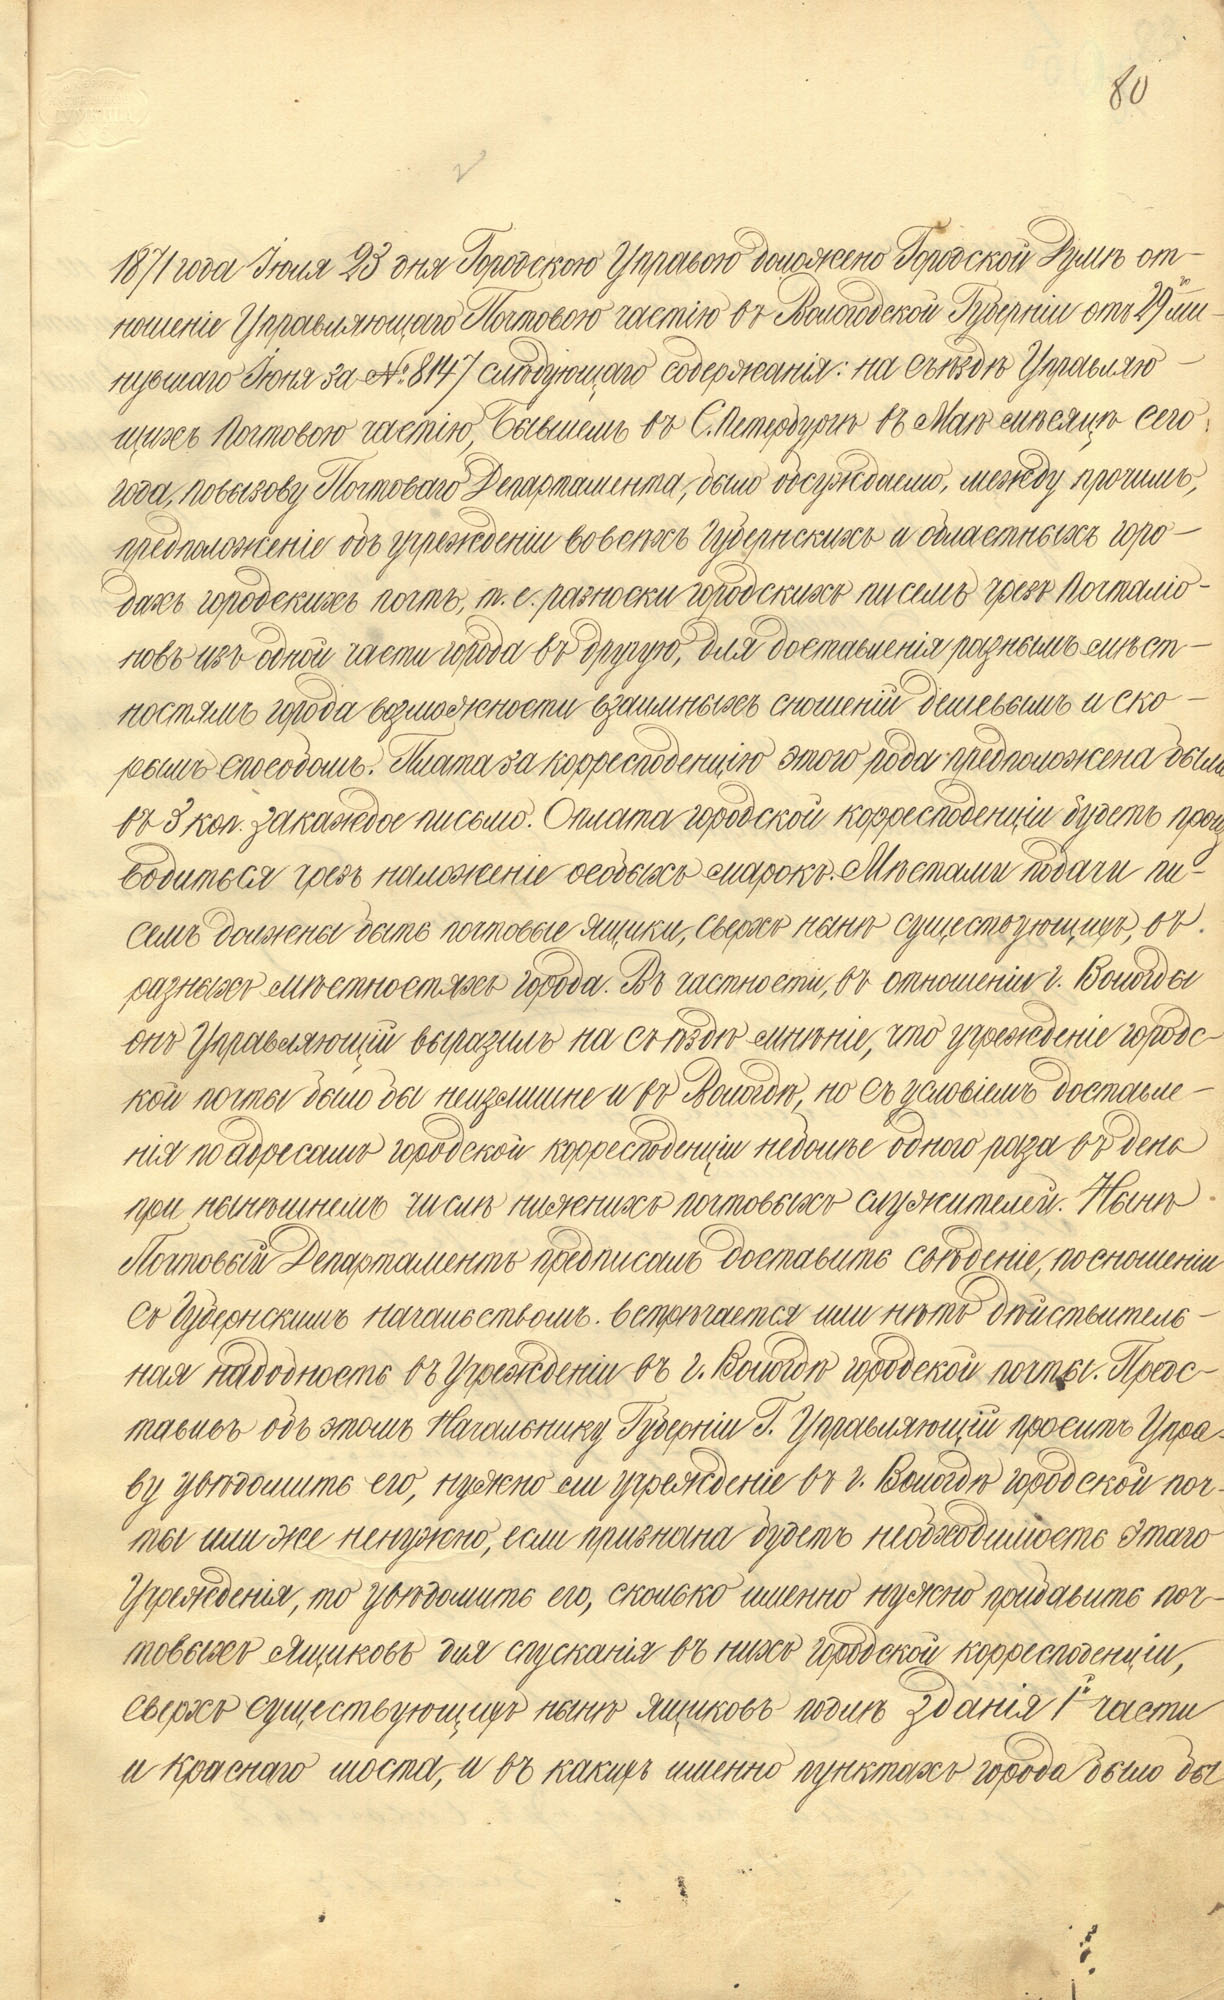 80
1871 года Іюля 23 дня Городскою Управою доложено Городской Думѣ от-
ношеніе Управляющаго Почтовою частію въ Вологодской Губерніи отъ 29го ми-
нувшаго Іюня за №8147 слѣдующаго содержанія: на съѣздѣ Управляю-
щихъ Почтовою частію, бывшемъ въ С.Петербургѣ въ Маѣ мѣсяцѣ сего
года, повызову Почтоваго Департамента, было обсуждаемо, между прочимъ,
предположеніе объ учрежденіи вовсѣхъ Губернскихъ и областныхъ горо-
дахъ городскихъ почтъ, т. е. разноски городскихъ писемъ чрезъ Почталіо-
новъ изъ одной части города въ другую, для доставленія разнымъ мѣст-
ностямъ города возможности взаимныхъ сношеній дешевымъ и ско-
рымъ способомъ. Плата за корресподенцію этого рода предположена была
въ 3 коп. закаждое письмо. Оплата городской корресподенціи будетъ произ
водиться чрезъ наложеніе особыхъ марокъ. Мѣстами подачи пи-
семъ должены быть почтовые ящики, сверхъ нынѣ существующихъ, въ
разныхъ мѣстностяхъ города. Въ частности, въ отношеніи г. Вологды
онъ Управляющій выразилъ на съѣздѣ мнѣніе, что учрежденіе городс-
кой почты было бы неизлишне и въ Вологдѣ, но съ условіемъ доставле-
нія по адресамъ городской корресподенціи неболѣе одного раза въ день
при нынѣшнемъ числѣ нижнихъ почтовыхъ служителей. Нынѣ
Почтовый Департаментъ предписалъ доставить свѣденіе, посношеніи
съ Губернскимъ начальствомъ. встрѣчается или нѣтъ дѣйствитель-
ная надобность въ Учрежденіи въ г. Вологдѣ городской почты. Предс-
тавивъ объ этомъ Начальнику Губерніи Г. Управляющій проситъ Упра-
ву увѣдомить его, нужно ли учрежденіе въ г. Вологдѣ городской поч-
ты или же ненужно, если признана будетъ необходимость этаго
Учрежденія, то увѣдомить его, сколько именно нужно прибавить поч-
товыхъ ящиковъ для спусканія въ нихъ городской корресподенціи,
сверхъ существующихъ нынѣ ящиковъ подлѣ зданія 1й части
и Краснаго моста, и въ какихъ именно пунктахъ города было бы